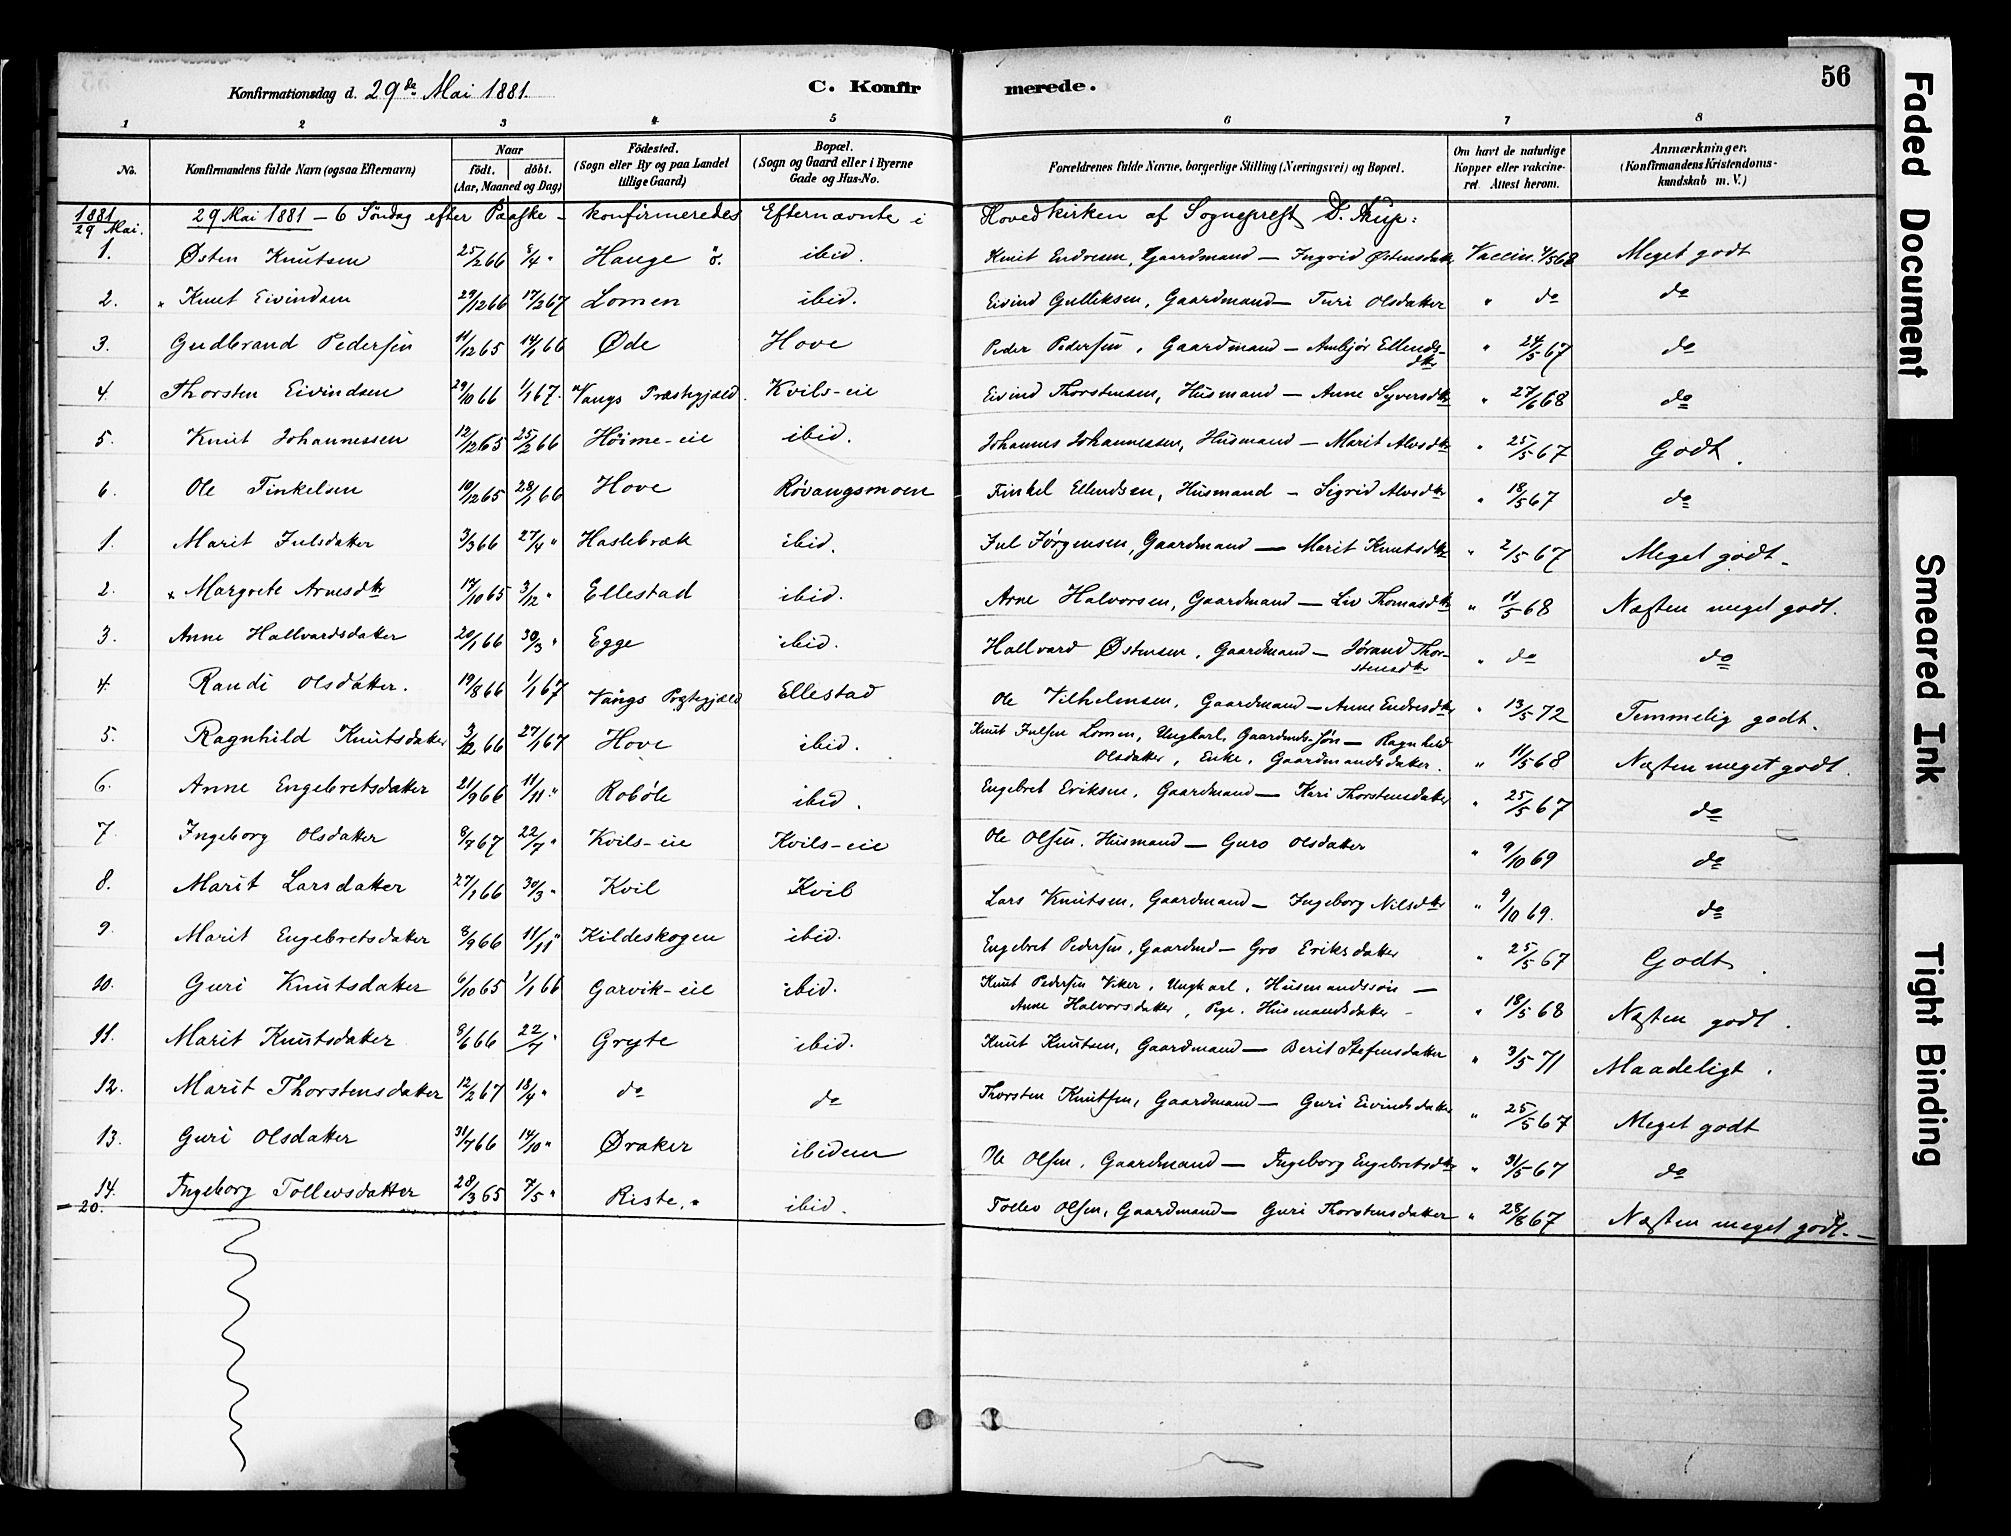 Konfirmationsdag d. 29de Mai 1881. C. Konfir merede. 56
1 2 3 4 5 6 7 8
No. Konfirmandens fulde Navn (ogsaa Efternavn) Naar født. døbt. (Aar, Maaned og Dag) Fødested. (Sogn eller By og paa Landet tillige Gaard) Bopæl. (Sogn og Gaard eller i Byerne Gade og Hus-No. Forældrenes fulde Navne, borgerlige Stilling (Næringsvei) og Bopæl. Om havt de naturlige Kopper eller vakcineret. Attest herom. Anmærkninger. (Konfirmandens Kristendomskundskab m. V.)
1881 29 Mai. 29 Mai 1881 – 6 Söndag efter Paaske – konfirmeredes Efternævnte i Hovedkirken af Sogneprest
1. Østen Knutsen 25/2 66 8/4 " Hauge ö. ibid. Knut Endresen, Gaardmand – Ingrid Østensdatter Vaccin. 4/5 68 Meget godt
2. Knut Eivindsen 29/12 66 17/2 67 Lomen ibid. Eivind Gulliksen, Gaardmand – Turi Olsdatter " do do
3. Gudbrand Pedersen 11/12 65 14/1 66 Øde Hove Peder Pedersen, Gaardmand – Ambjør Ellendsdtr " 24/5 67 do
4. Thorsten Eivindsen 29/10 66 1/1 67. Vangs Præstegjæld. Kvils-eie Eivind Thorstensen, Husmand – Anne Syversdtr " 27/6 68 do
5. Knut Johannessen 12/12 65 25/2 66 Höime-eie ibid. Johannes Johannessen, Husmand – Marit Alvsdtr " 25/5 67 Godt.
6. Ole Finkelsen 10/12 65 28/1 66 Hove Røvangsmoen Finkel Ellendsen, Husmand – Sigrid Alvsdtr " 18/5 67 do
1. Marit Julsdatter 3/3 66 27/4 " Haslebræk ibid. Jul Jørgensen, Gaardmand – Marit Knutsdtr " 2/5 67 Meget godt.
2. × Margrete Arnesdtr 17/10 65 3/12 " Ellestad ibid. Arne Halvorsen, Gaardmand – Liv Thomasdtr " 11/5 68 Næsten meget godt.
3. Anne Hallvardsdatter 20/1 66 30/3 " Egge ibid. Hallvard Østensen, Gaardmand – Jørand Thorstensdtr " do do
4. Randi Olsdatter. 19/8 66 1/1 67 Vangs Prgstegjæld Ellestad Ole Vilhelmsen, Gaardmand – Anne Endresdtr " 13/5 72 Temmelig godt.
5. Ragnhild Knutsdatter 3/12 66 27/1 67 Hove ibid. Knut Julsen Lomen, Ungkarl, Gaardmds-søn – Ragnhild
Olsdatter, Enke, Gaardmandsdatter. " 11/5 68 Næsten meget godt.
6. Anne Engebretsdatter 21/9 66 11/11 " Robøle ibid. Engebret Eriksen, Gaardmand – Kari Thorstensdatter " 25/5 67 do
7. Ingeborg Olsdatter 8/7 67 22/7 " Kvils-eie Kvils-eie Ole Olsen, Husmand – Guro Olsdatter " 9/10 69 do
8. Marit Larsdatter 27/1 66 30/3 " Kvil Kvil Lars Knutsen, Gaardmand – Ingeborg Nilsdtr " 9/10 69. do
9. Marit Engebretsdatter 8/9 66 11/11 " Kildeskogen ibid. Engebret Pedersen, Gaardmd – Gro Eriksdatter " 25/5 67 Godt.
10. Guri Knutsdatter 6/10 65 1/1 66 Garvik-eie ibid. Knut Pedersen Viker, Ungkarl, Husmandssøn –
Anne Halvorsdatter, Pige, Husmandsdatter – " 18/5 68 Næsten godt.
11. Marit Knutsdatter 8/6 66 22/7 " Gryte ibid. Knut Knutsen, Gaardmand – Berit Stefensdatter " 3/5 71 Maadeligt.
12. Marit Thorstensdatter 12/2 67 18/4 " do do Thorsten Knutsen, Gaardmand – Guri Eivindsdatter " 25/5 67 Meget godt
13. Guri Olsdatter 31/7 66 14/10 " Øraker ibidem Ole Olsen, Gaardmand – Ingeborg Engebretsdtr " 31/5 67 do
14. Ingeborg Tollevsdatter 28/3 65 7/5 " Riste. " ibid. Tollev Olsen, Gaardmand – Guri Thorstensdatter " 28/8 67 Næsten meget godt. –
20.
Faded Document
Smeared Ink
Tight Binding